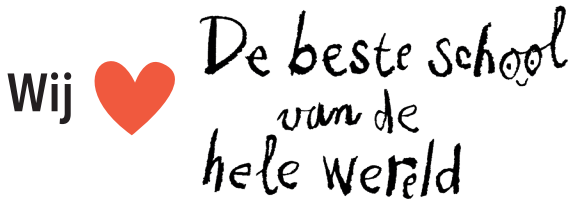 Wij
De beste school
van de
hele wereld